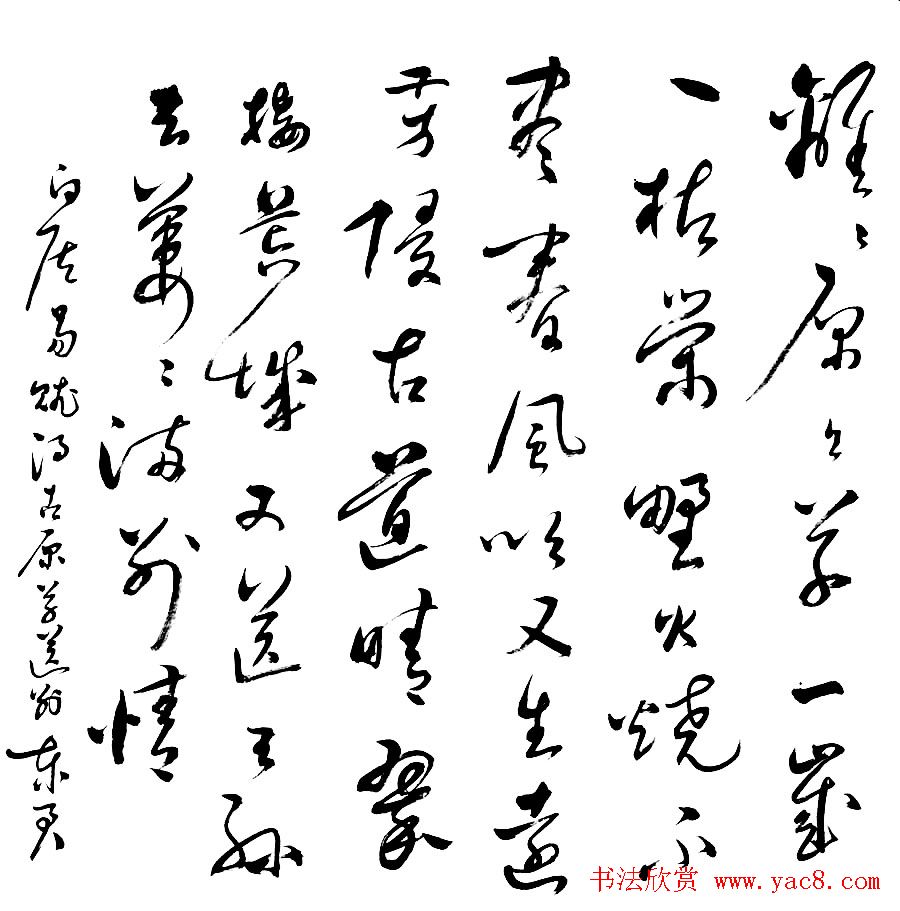 離〻原上草一歲
一枯榮野火燒不
盡春風吹又生遠
芳侵古道晴翠
接荒城又送王孫
去萋〻滿別情
白居易賦得古原草送別
书法欣赏 www.yac8.com